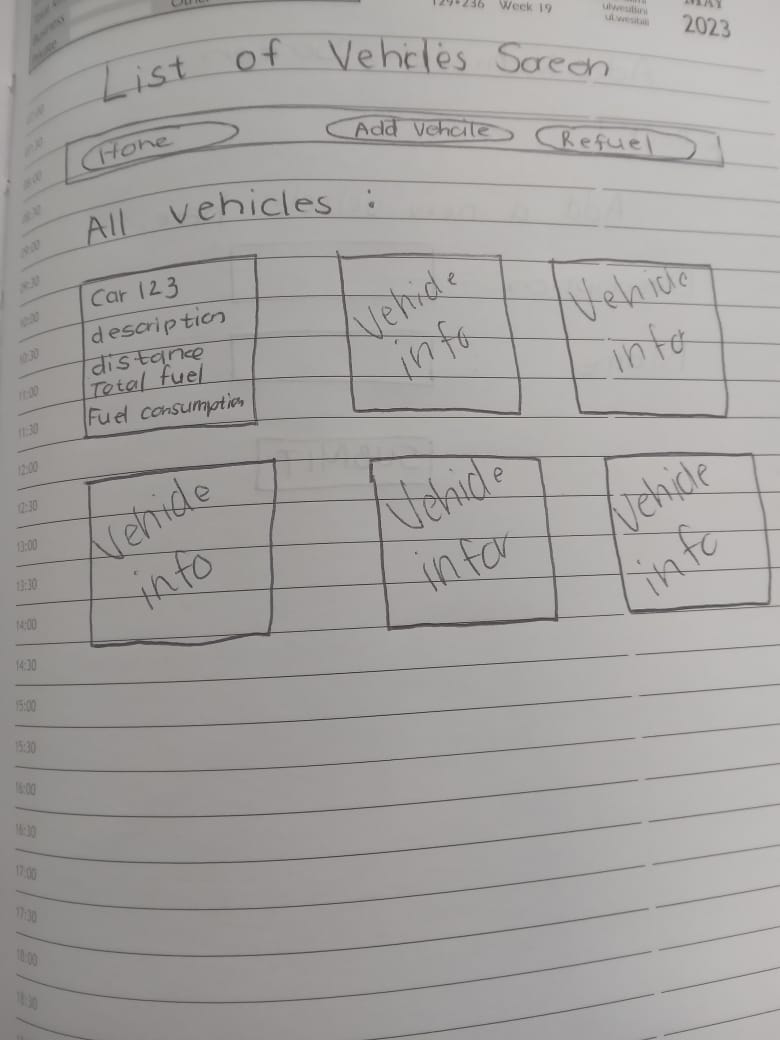 129-236 Week 19
MAY
2023
List of Vehicles Screen
Home Add Vehcile Refuel
All vehicles :
Car 123
description
distance
Total fuel
Fuel consumption
Vehicle
info
Vehicle
info
Vehicle
info
Vehicle
info
Vehicle
info
SUBMIT
07:00
07:30
08:00
08:30
09:00
09:30
10:00
10:30
11:00
11:30
12:00
12:30
13:00
13:30
14:00
14:30
15:00
15:30
16:00
16:30
17:00
17:30
18:00
18:30